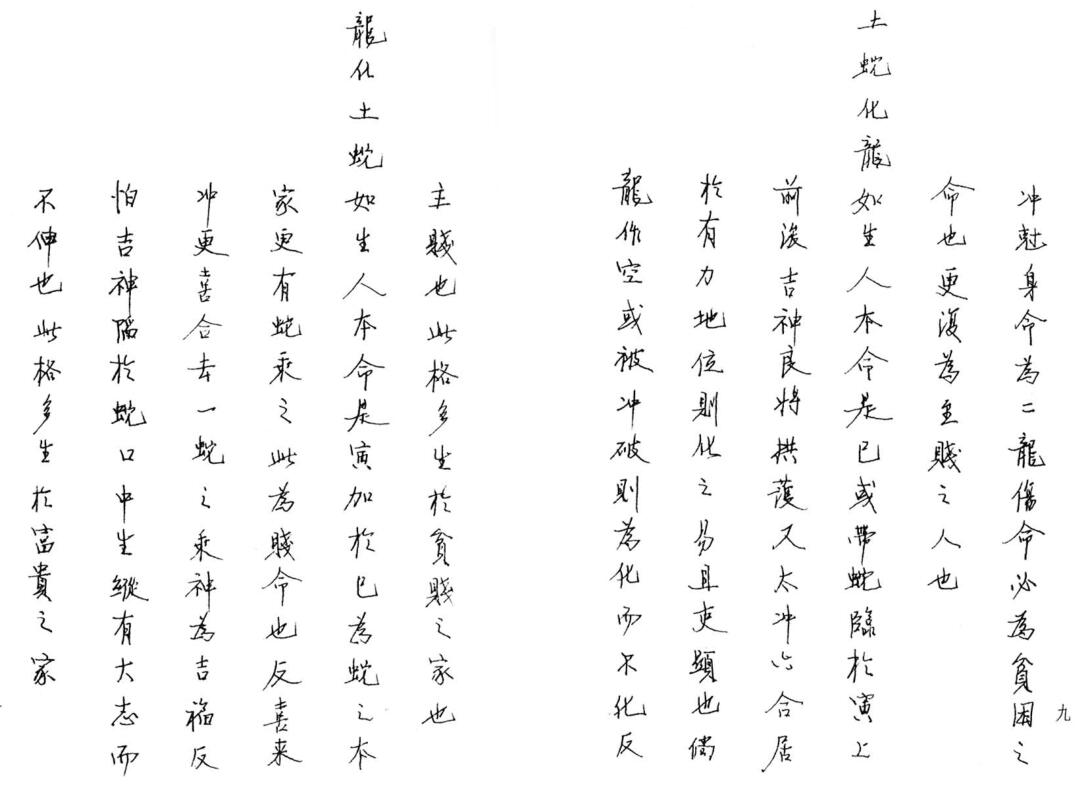 冲尅身命為二龍傷命必為貧困之
命也更復為至賤之人也
土蛇化龍如生人本命是巳或帶蛇臨於寅上
前後吉神良將拱護又太冲六合居
於有力地位則化之易且吏顯也倘
龍作空或被冲破則為化而不化反
九
主賤也此格多生於貧賤之家也
龍化土蛇如生人本命是寅加於巳為蛇之本
家更有蛇乘之此為賤命也反喜来
冲更喜合去一蛇之乘神為吉福反
怕吉神陷於蛇口中生縱有大志而
不伸也此格多生於富貴之家